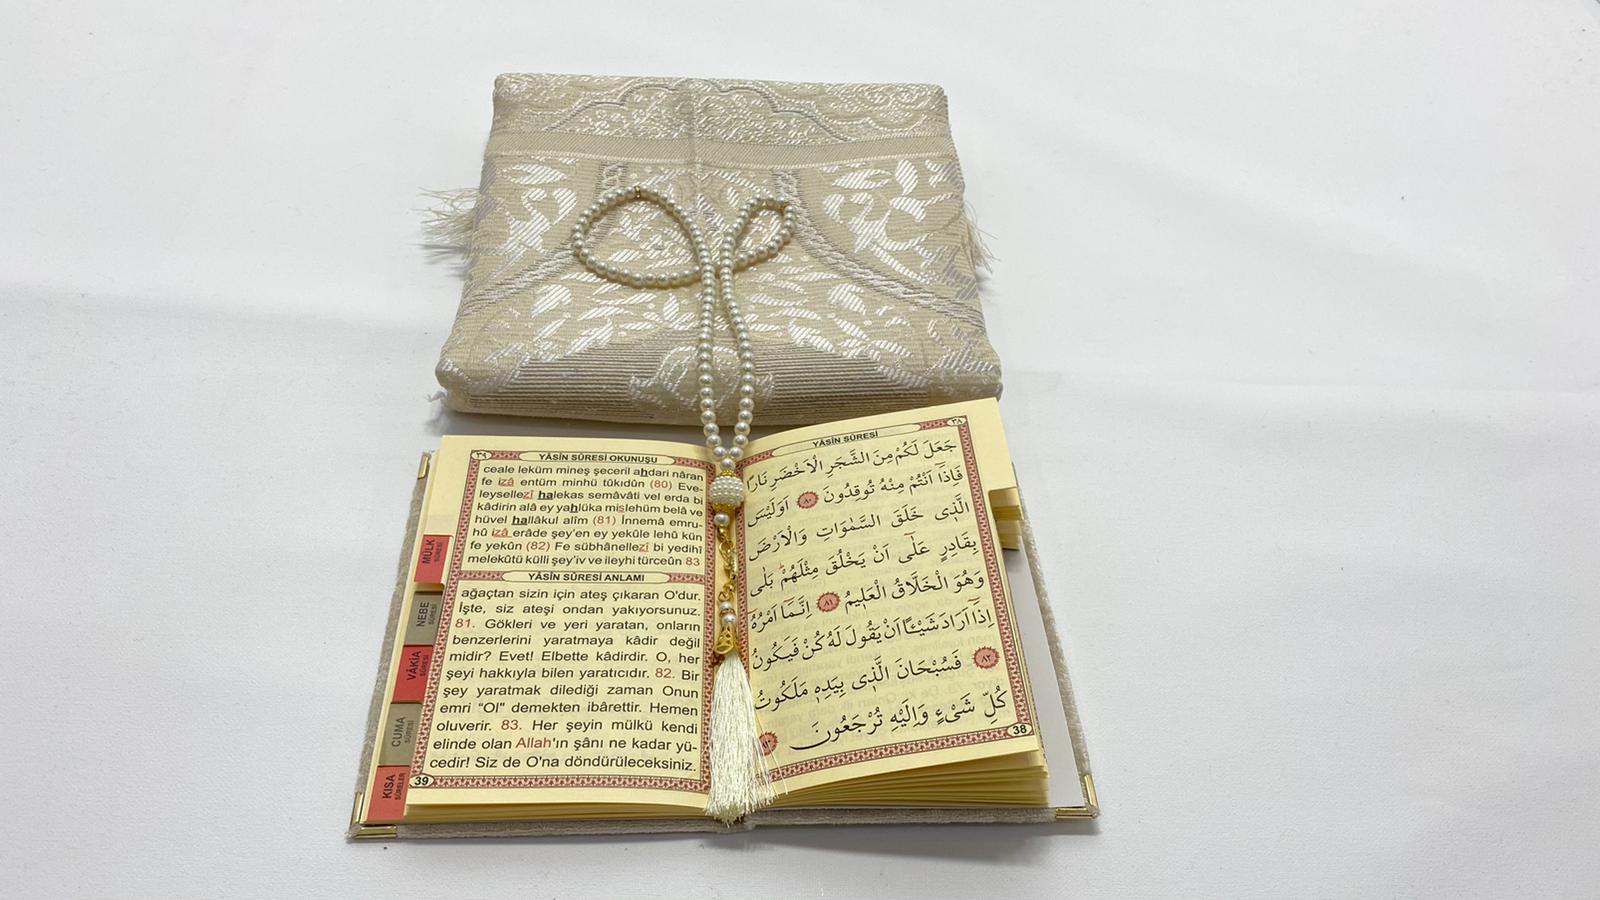 ٣٩
YÂSÎN SÛRESİ OKUNUŞU
ceale leküm mineş şeceril ahdari nâran
fe izâ entüm minhü tûkıdûn (80) Eve-
leysellezî halekas semâvâti vel erda bi
kâdirin alâ ey yahlüka mislehüm belâ ve
hüvel hallâkul alîm (81) İnnemâ emru-
hû izâ erâde şey'en ey yekûle lehû kün
fe yekûn (82) Fe sübhânellezî bi yedihî
melekûtü külli şey'iv ve ileyhi türceûn 83
YÂSÎN SÛRESİ ANLAMI
ağaçtan sizin için ateş çıkaran O'dur.
İşte, siz ateşi ondan yakıyorsunuz.
81. Gökleri ve yeri yaratan, onların
benzerlerini yaratmaya kâdir değil
midir? Evet! Elbette kâdirdir. O, her
şeyi hakkıyla bilen yaratıcıdır. 82. Bir
şey yaratmak dilediği zaman Onun
emri "Ol" demekten ibârettir. Hemen
oluverir. 83. Her şeyin mülkü kendi
elinde olan Allah'ın şânı ne kadar yü-
cedir! Siz de O'na döndürüleceksiniz.
39
MÜLK
SÛRESİ
NEBE
SÛRESİ
VÂKIA
SÛRESİ
CUMA
SÛRESİ
KISA
SÛRELER
٣٨
YÂSÎN SÛRESİ
جَعَلَ لَكُمْ مِنَ الشَّجَرِ الْاَخْضَرِ نَارًا
فَاِذَٓا اَنْتُمْ مِنْهُ تُوقِدُونَ ٨٠ اَوَلَيْسَ
الَّذ۪ي خَلَقَ السَّمٰوَاتِ وَالْاَرْضَ
بِقَادِرٍ عَلٰٓى اَنْ يَخْلُقَ مِثْلَهُمْۜ بَلٰى
وَهُوَ الْخَلَّاقُ الْعَل۪يمُ ٨١ اِنَّمَٓا اَمْرُهُٓ
اِذَٓا اَرَادَ شَيْـًٔا اَنْ يَقُولَ لَهُ كُنْ فَيَكُونُ
٨٢ فَسُبْحَانَ الَّذ۪ي بِيَدِه۪ مَلَكُوتُ
كُلِّ شَيْءٍ وَاِلَيْهِ تُرْجَعُونَ ٨٣
38